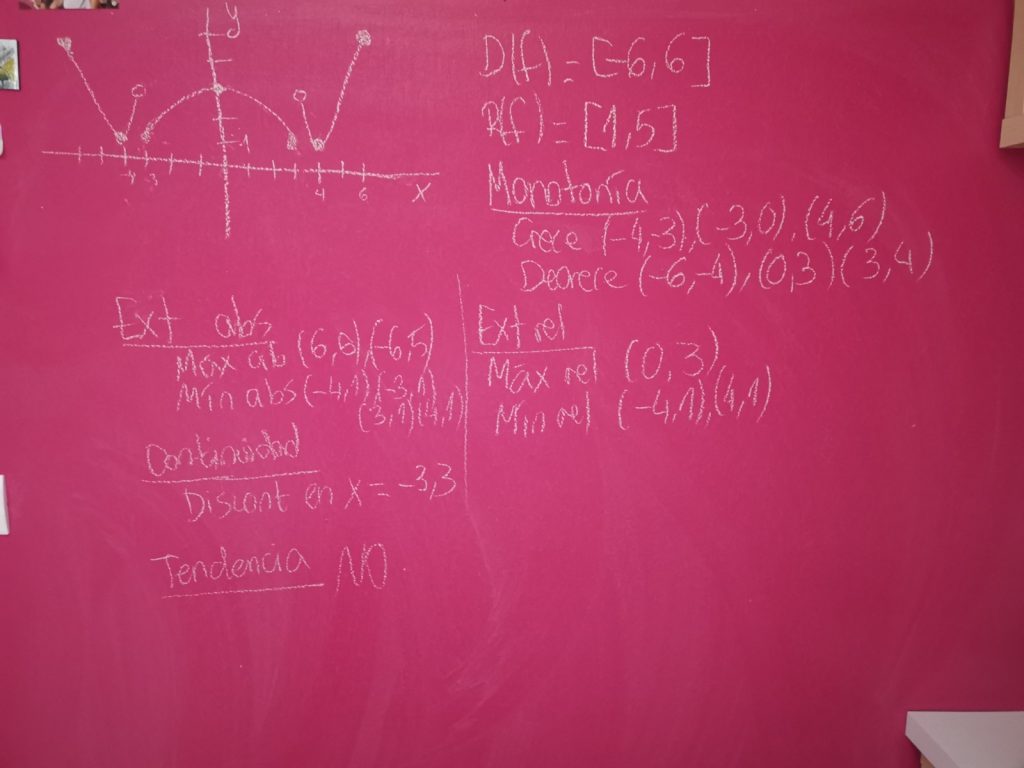 y
1
-4 -3 4 6 x
D(f) = [-6,6]
R(f) = [1,5]
Monotonía
Crece (-4,-3), (-3,0), (4,6)
Decrece (-6,-4), (0,3) (3,4)
Ext abs
Máx ab (6,8) (-6,5)
Mín abs (-4,1) (-3,1)
(3,1) (4,1)
Continuidad
Discont en x = -3,3
Tendencia NO
Ext rel
Máx rel (0,3)
Mín rel (-4,1), (4,1)